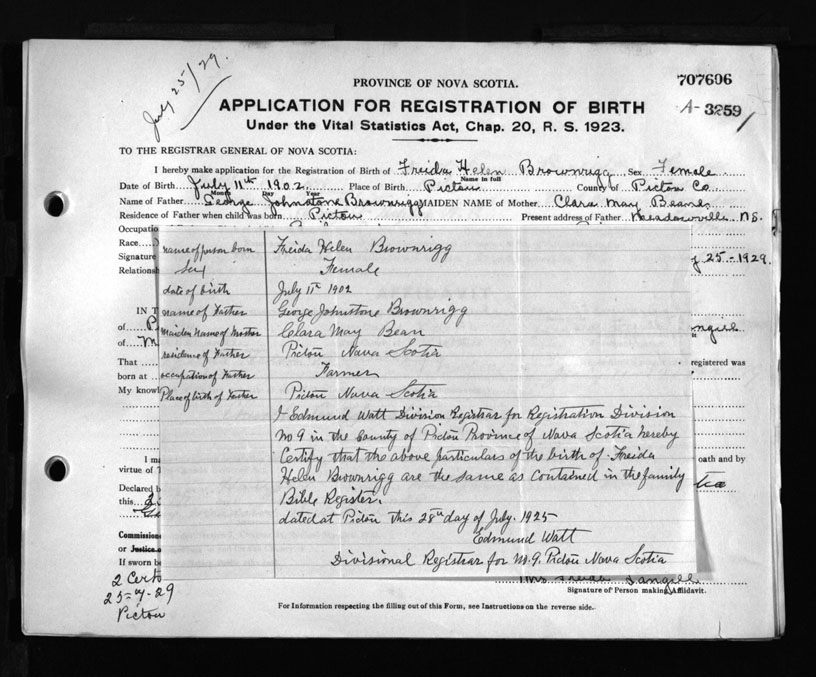 July 25/29.
PROVINCE OF NOVA SCOTIA.
707606
APPLICATION FOR REGISTRATION OF BIRTH
A-3259
Under the Vital Statistics Act, Chap. 20, R. S. 1923.
TO THE REGISTRAR GENERAL OF NOVA SCOTIA:
I hereby make application for the Registration of Birth of Freida Helen Brownrigg Sex Female
Name in full
Date of Birth July 11th 1902 Place of Birth Pictou County of Pictou Co
Month Day Year
Name of Father George Johnstone Brownrigg MAIDEN NAME of Mother Clara May Beane
Residence of Father when child was born Pictou Present address of Father Meadowville N.S.
Occupatio
Race
Signature y 25-1929.
Relations
name of person born Freida Helen Brownrigg
Sex Female
date of birth July 11th 1902
IN T name of Father George Johnstone Brownrigg
of P maiden Name of Mother Clara May Bean
of M residence of Father Pictou Nova Scotia
That occupation of Father Farmer registered was
born at Place of birth of Father Pictou Nova Scotia
My knowl
I Edmund Watt Division Registrar for Registration Division
No 9 in the County of Pictou Province of Nova Scotia hereby
Certify that the above particulars of the birth of Freida
I ma oath and by
virtue of T Helen Brownrigg are the same as Contained in the family
Declared b Bible Register.
this dated at Pictou this 28th day of July. 1925
Edmund Watt
Commissione
or Justice o Divisional Registrar for No. 9. Pictou Nova Scotia
If sworn b
2 Cert
25-7-29
Pictou
Mrs Freida Langill
Signature of Person making Affidavit.
For Information respecting the filling out of this Form, see Instructions on the reverse side.